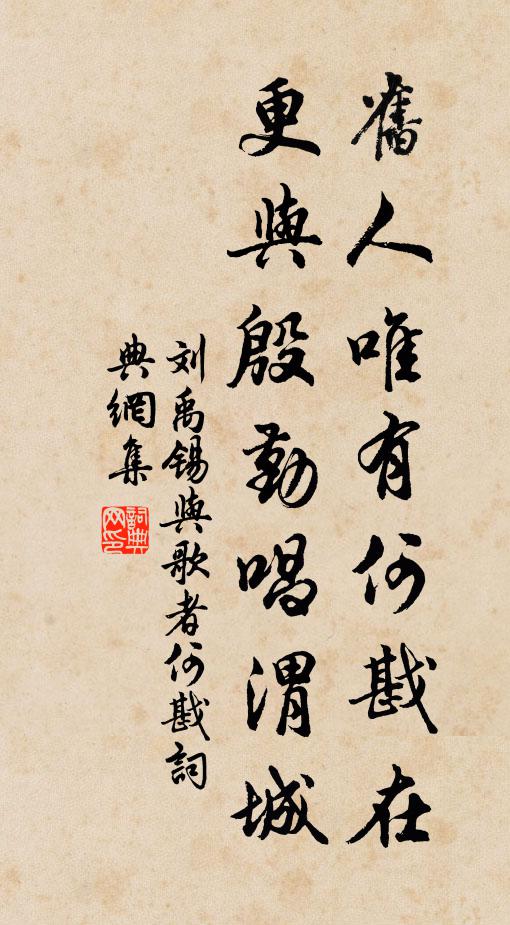 舊人唯有何戡在
更與殷勤唱渭城
刘禹锡與歌者何戡詞
典網集
詞典
网印